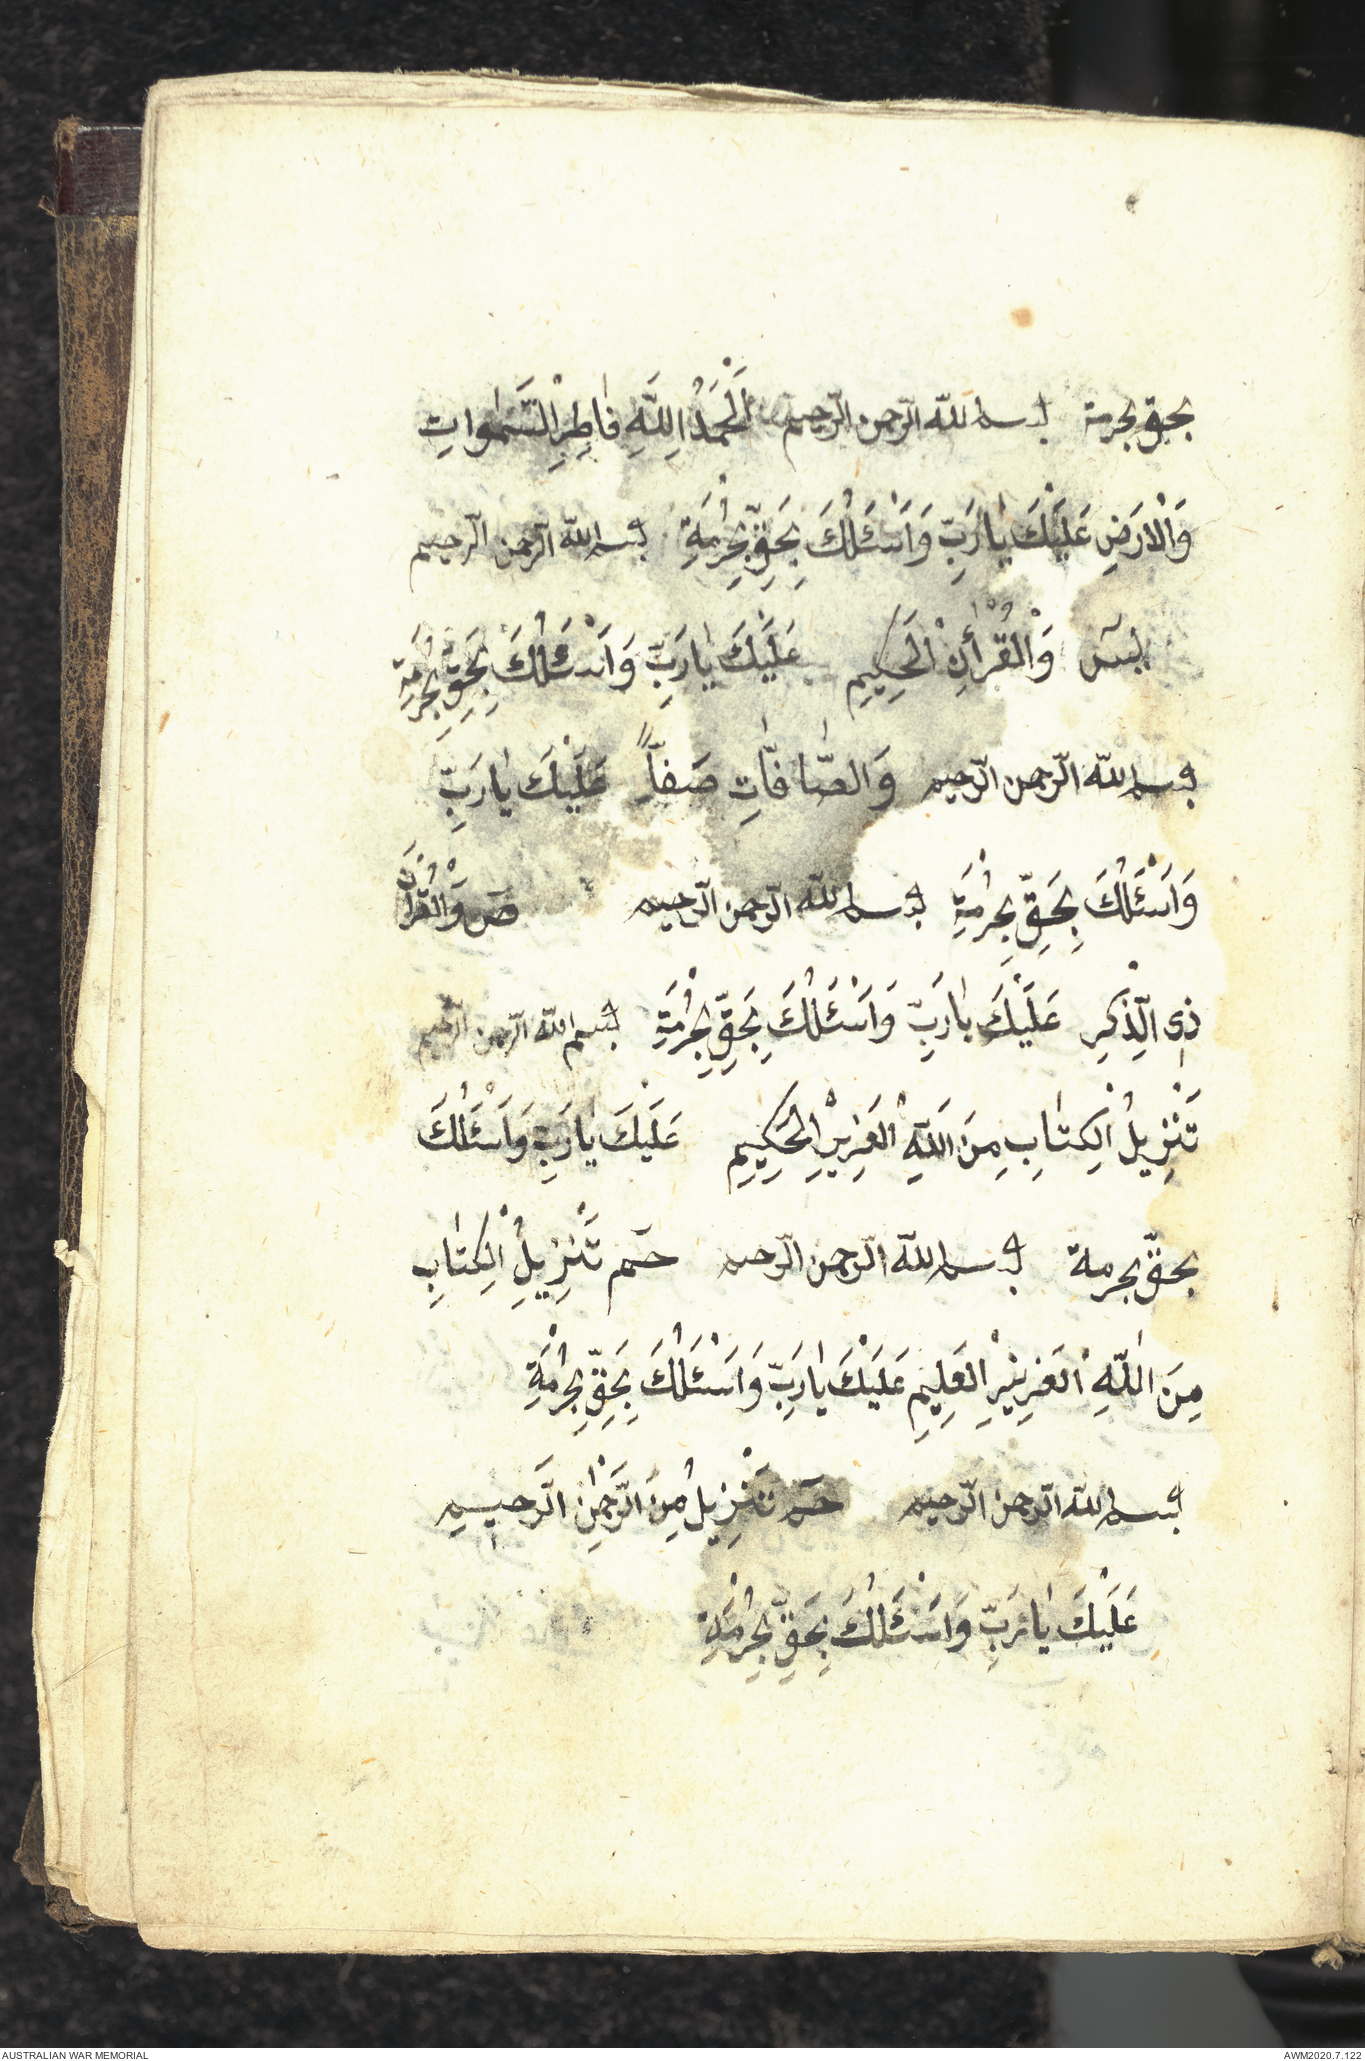 بحق بحرمة بسم الله الرحمن الرحيم اَلْحَمْدُ لِلّٰهِ فَاطِرِ السَّمٰوَاتِ
وَالْاَرْضِ عَلَيْكَ يٰارَبِّ وَاَسْئَلُكَ بِحَقِّ بِحُرْمَةِ بسم الله الرحمن الرحيم
يس وَالْقُرْاٰنِ الْحَكِيمِ عَلَيْكَ يٰارَبِّ وَاَسْئَلُكَ بِحَقِّ بِحُرْمَةِ
بسم الله الرّحمن الرّحيم وَالصّٰافّٰاتِ صَفّاً عَلَيْكَ يٰارَبِّ
وَاَسْئَلُكَ بِحَقِّ بِحُرْمَةِ بسم الله الرّحمن الرّحيم صٓ وَالْقُرْاٰنِ
ذِى الذِّكْرِ عَلَيْكَ يٰارَبِّ وَاَسْئَلُكَ بِحَقِّ بِحُرْمَةِ بسم الله الرّحمن الرّحيم
تَنْزِيلُ الْكِتٰابِ مِنَ اللّٰهِ الْعَزِيزِ الْحَكِيمِ عَلَيْكَ يٰارَبِّ وَاَسْئَلُكَ
بحقّ بحرمة بسم الله الرّحمن الرّحيم حٓم تَنْزِيلُ الْكِتٰابِ
مِنَ اللّٰهِ الْعَزِيزِ الْعَلِيمِ عَلَيْكَ يٰارَبِّ وَاَسْئَلُكَ بِحَقِّ بِحُرْمَةِ
بسم الله الرّحمن الرّحيم حٓم تَنْزِيلُ مِنَ الرَّحْمٰنِ الرَّحيمِ
عَلَيْكَ يٰارَبِّ وَاَسْئَلُكَ بِحَقِّ بِحُرْمَةِ
AUSTRALIAN WAR MEMORIAL
AWM2020.7.122